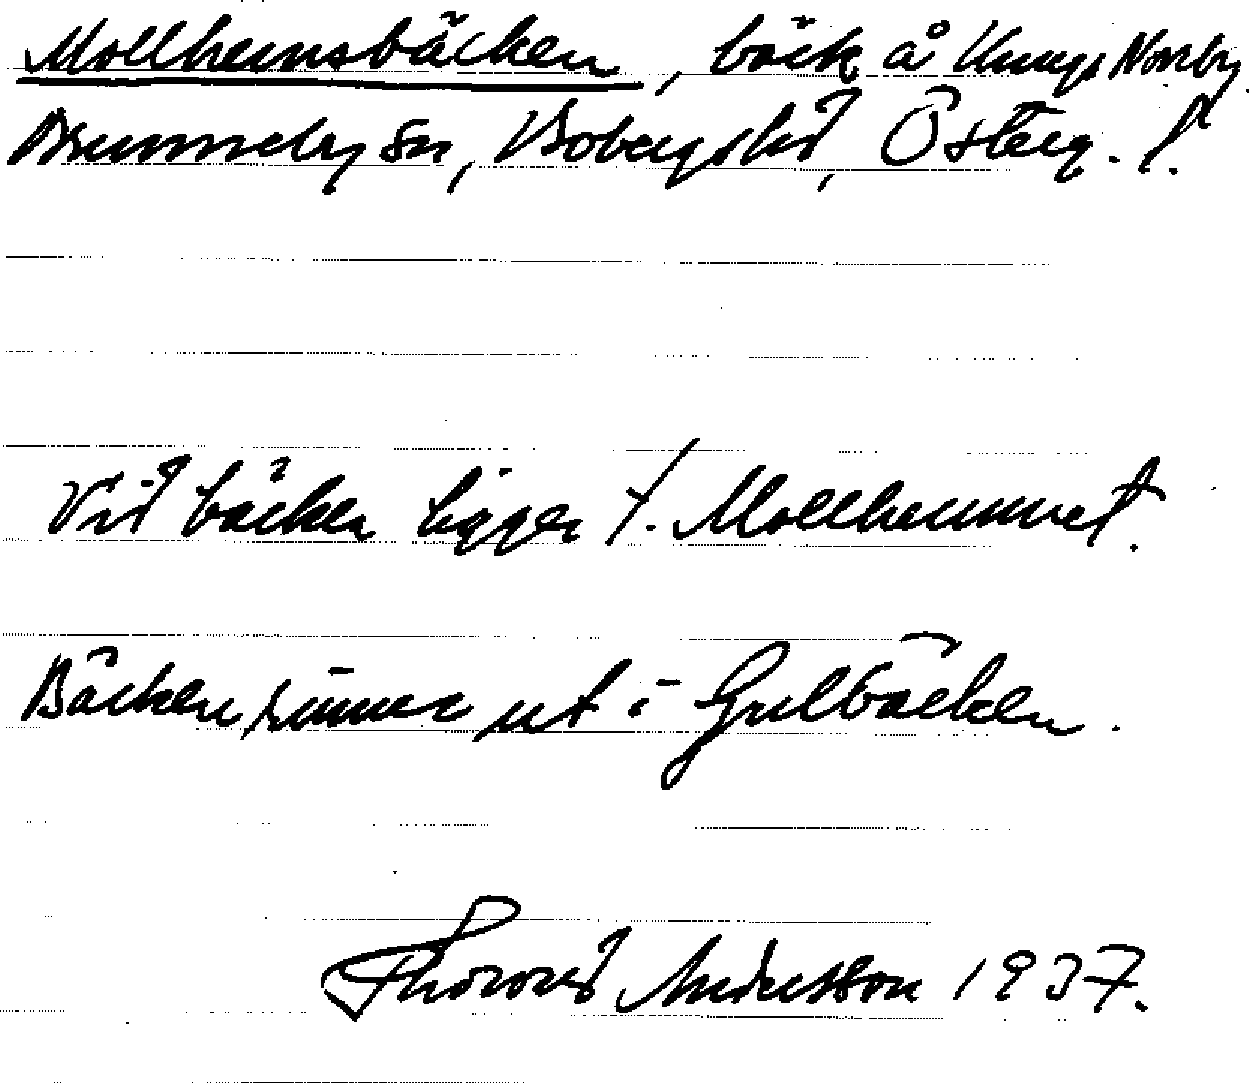 Mollhemsbäcken, bäck å Kungs Norrby
Brunneby sn, Bobergs hd, Österg. l.
Vid bäcken ligger t. Mollhemmet.
Bäcken rinner ut i Gulbäcken.
Thorvid Andersson 1937.